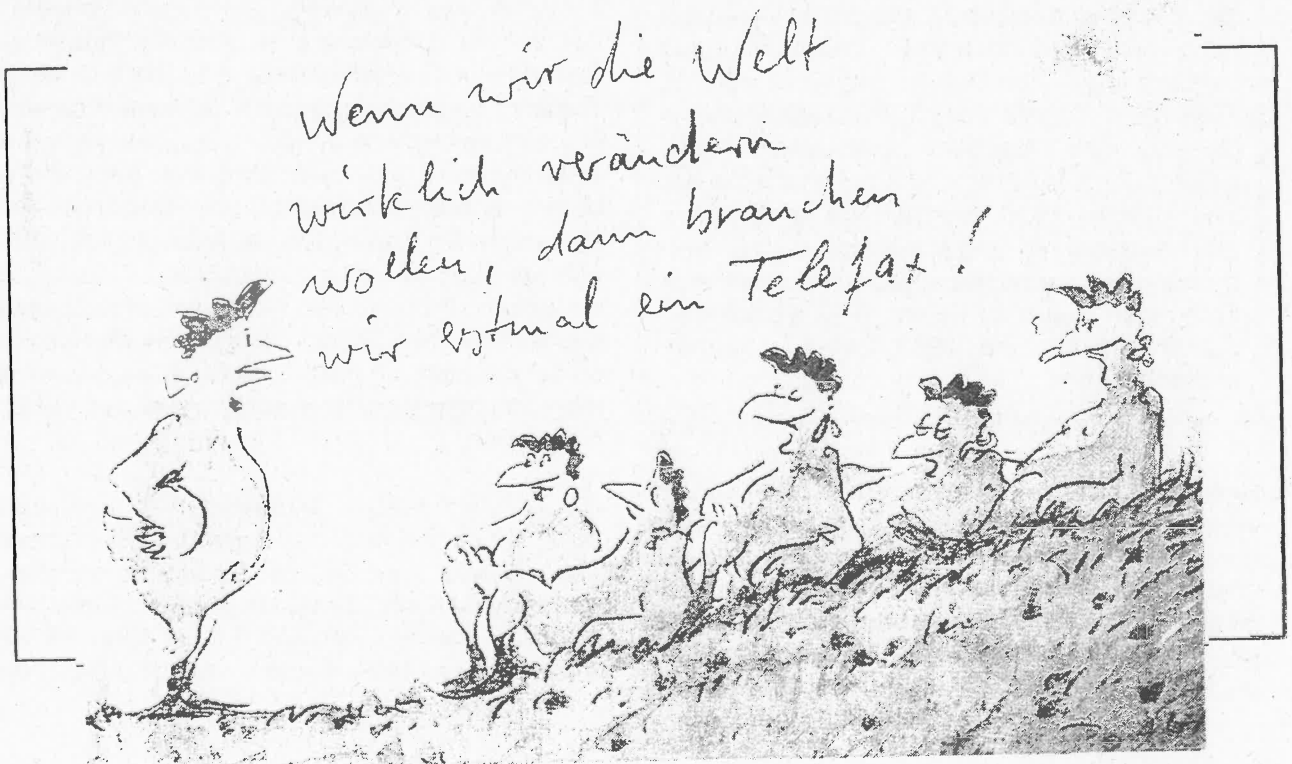 Wenn wir die Welt
wirklich verändern
wollen, dann brauchen
wir erstmal ein Telefax!